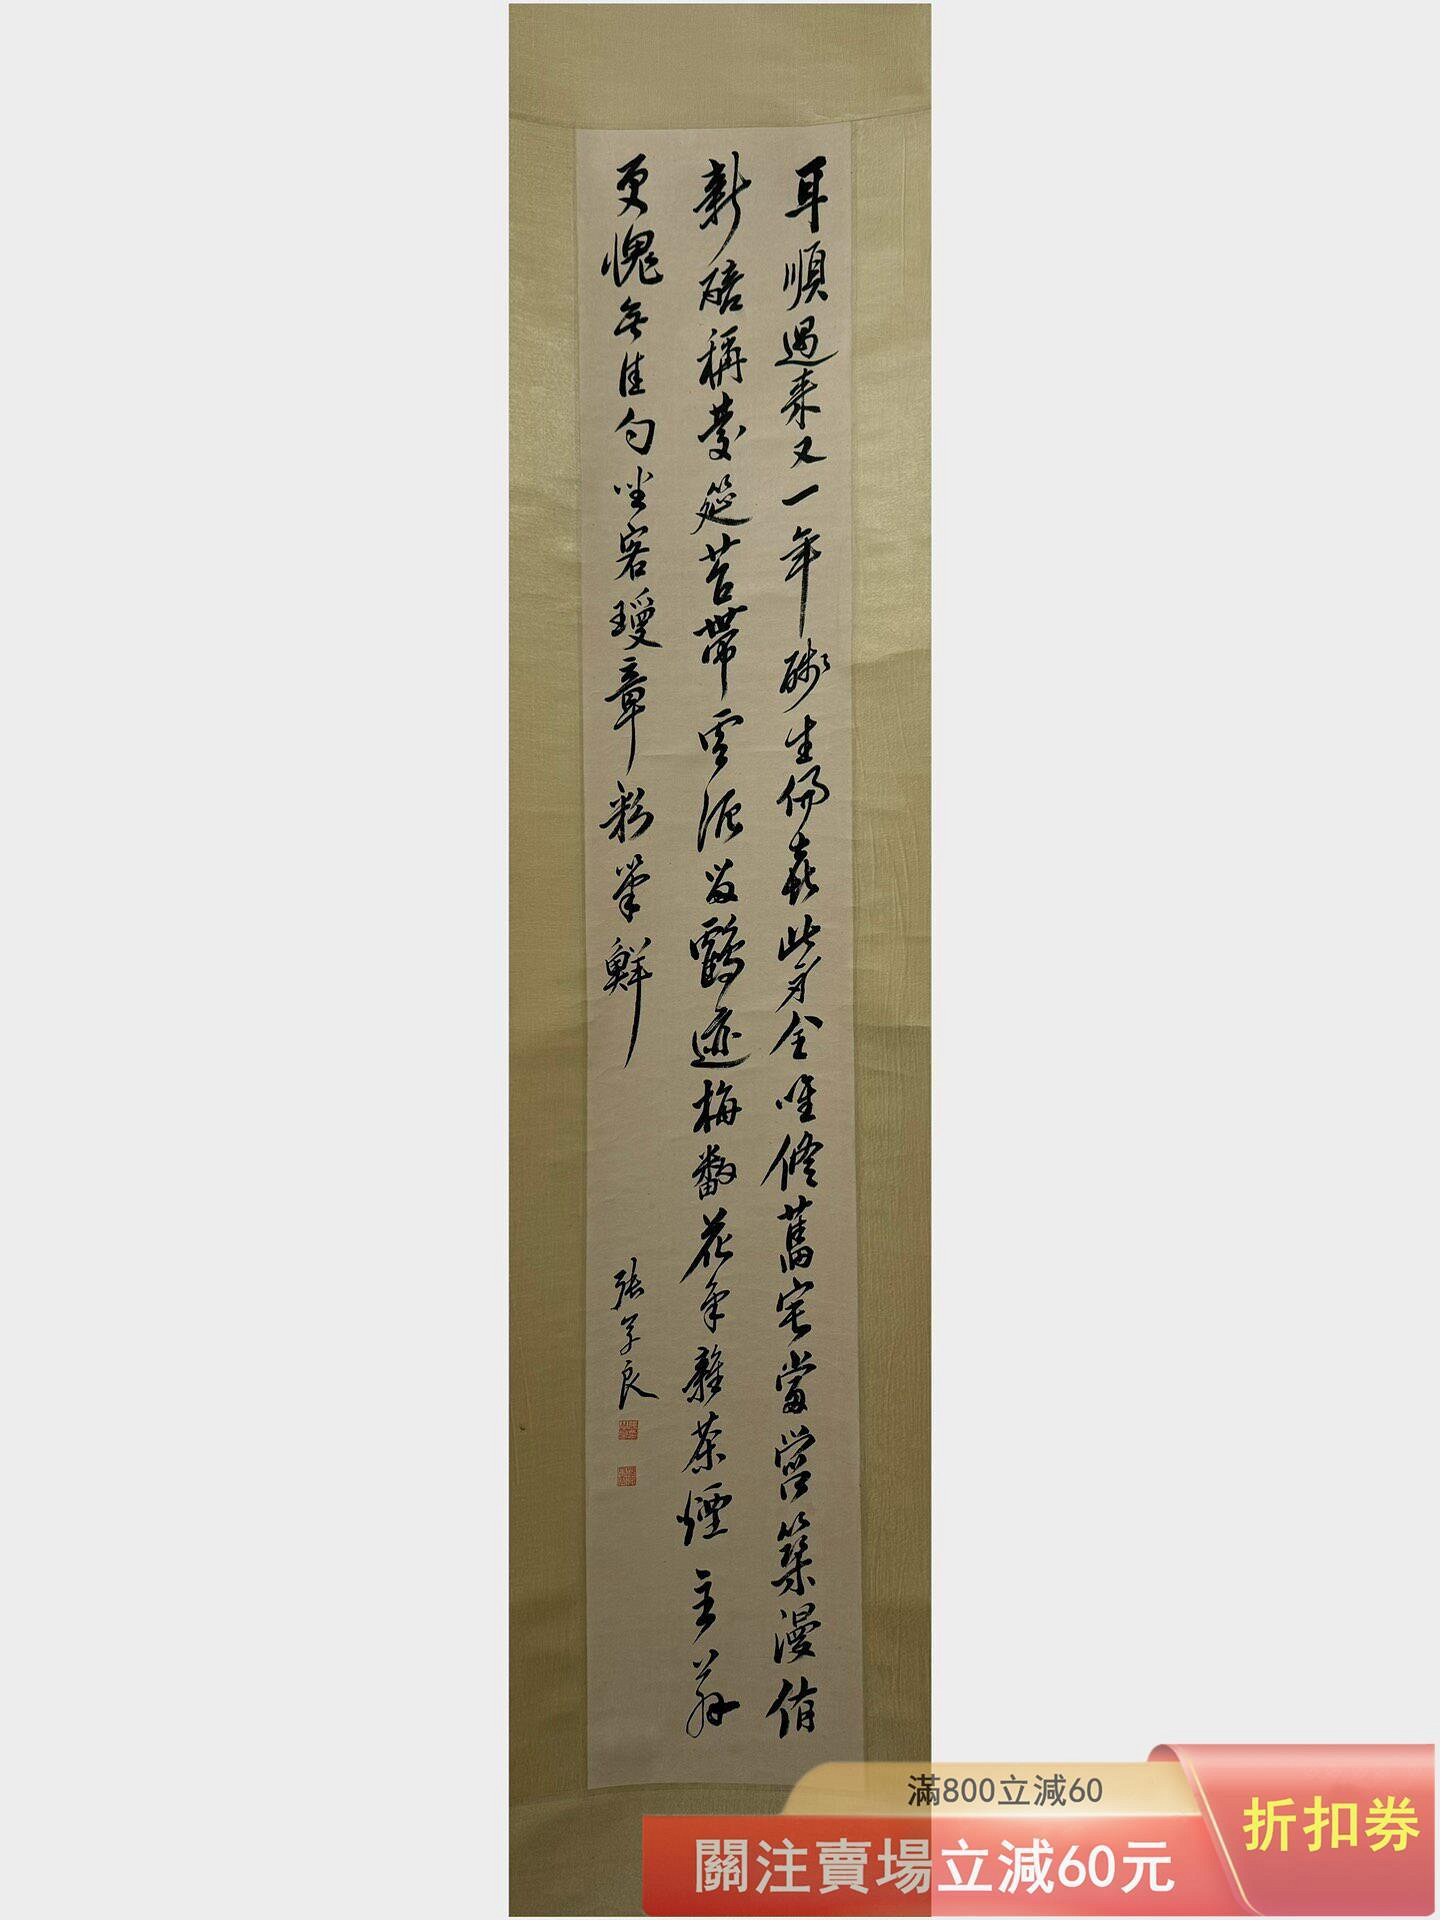 耳順過來又一年生偏喜此身全唯脩舊宅當營築漫侑
新醅稱慶筵苔帶雲泥留鶴迹梅翻花氣雜茶煙主翁
更愧無佳句坐客瓊章彩筆鮮
張學良
滿800立減60
關注賣場立減60元
折扣券